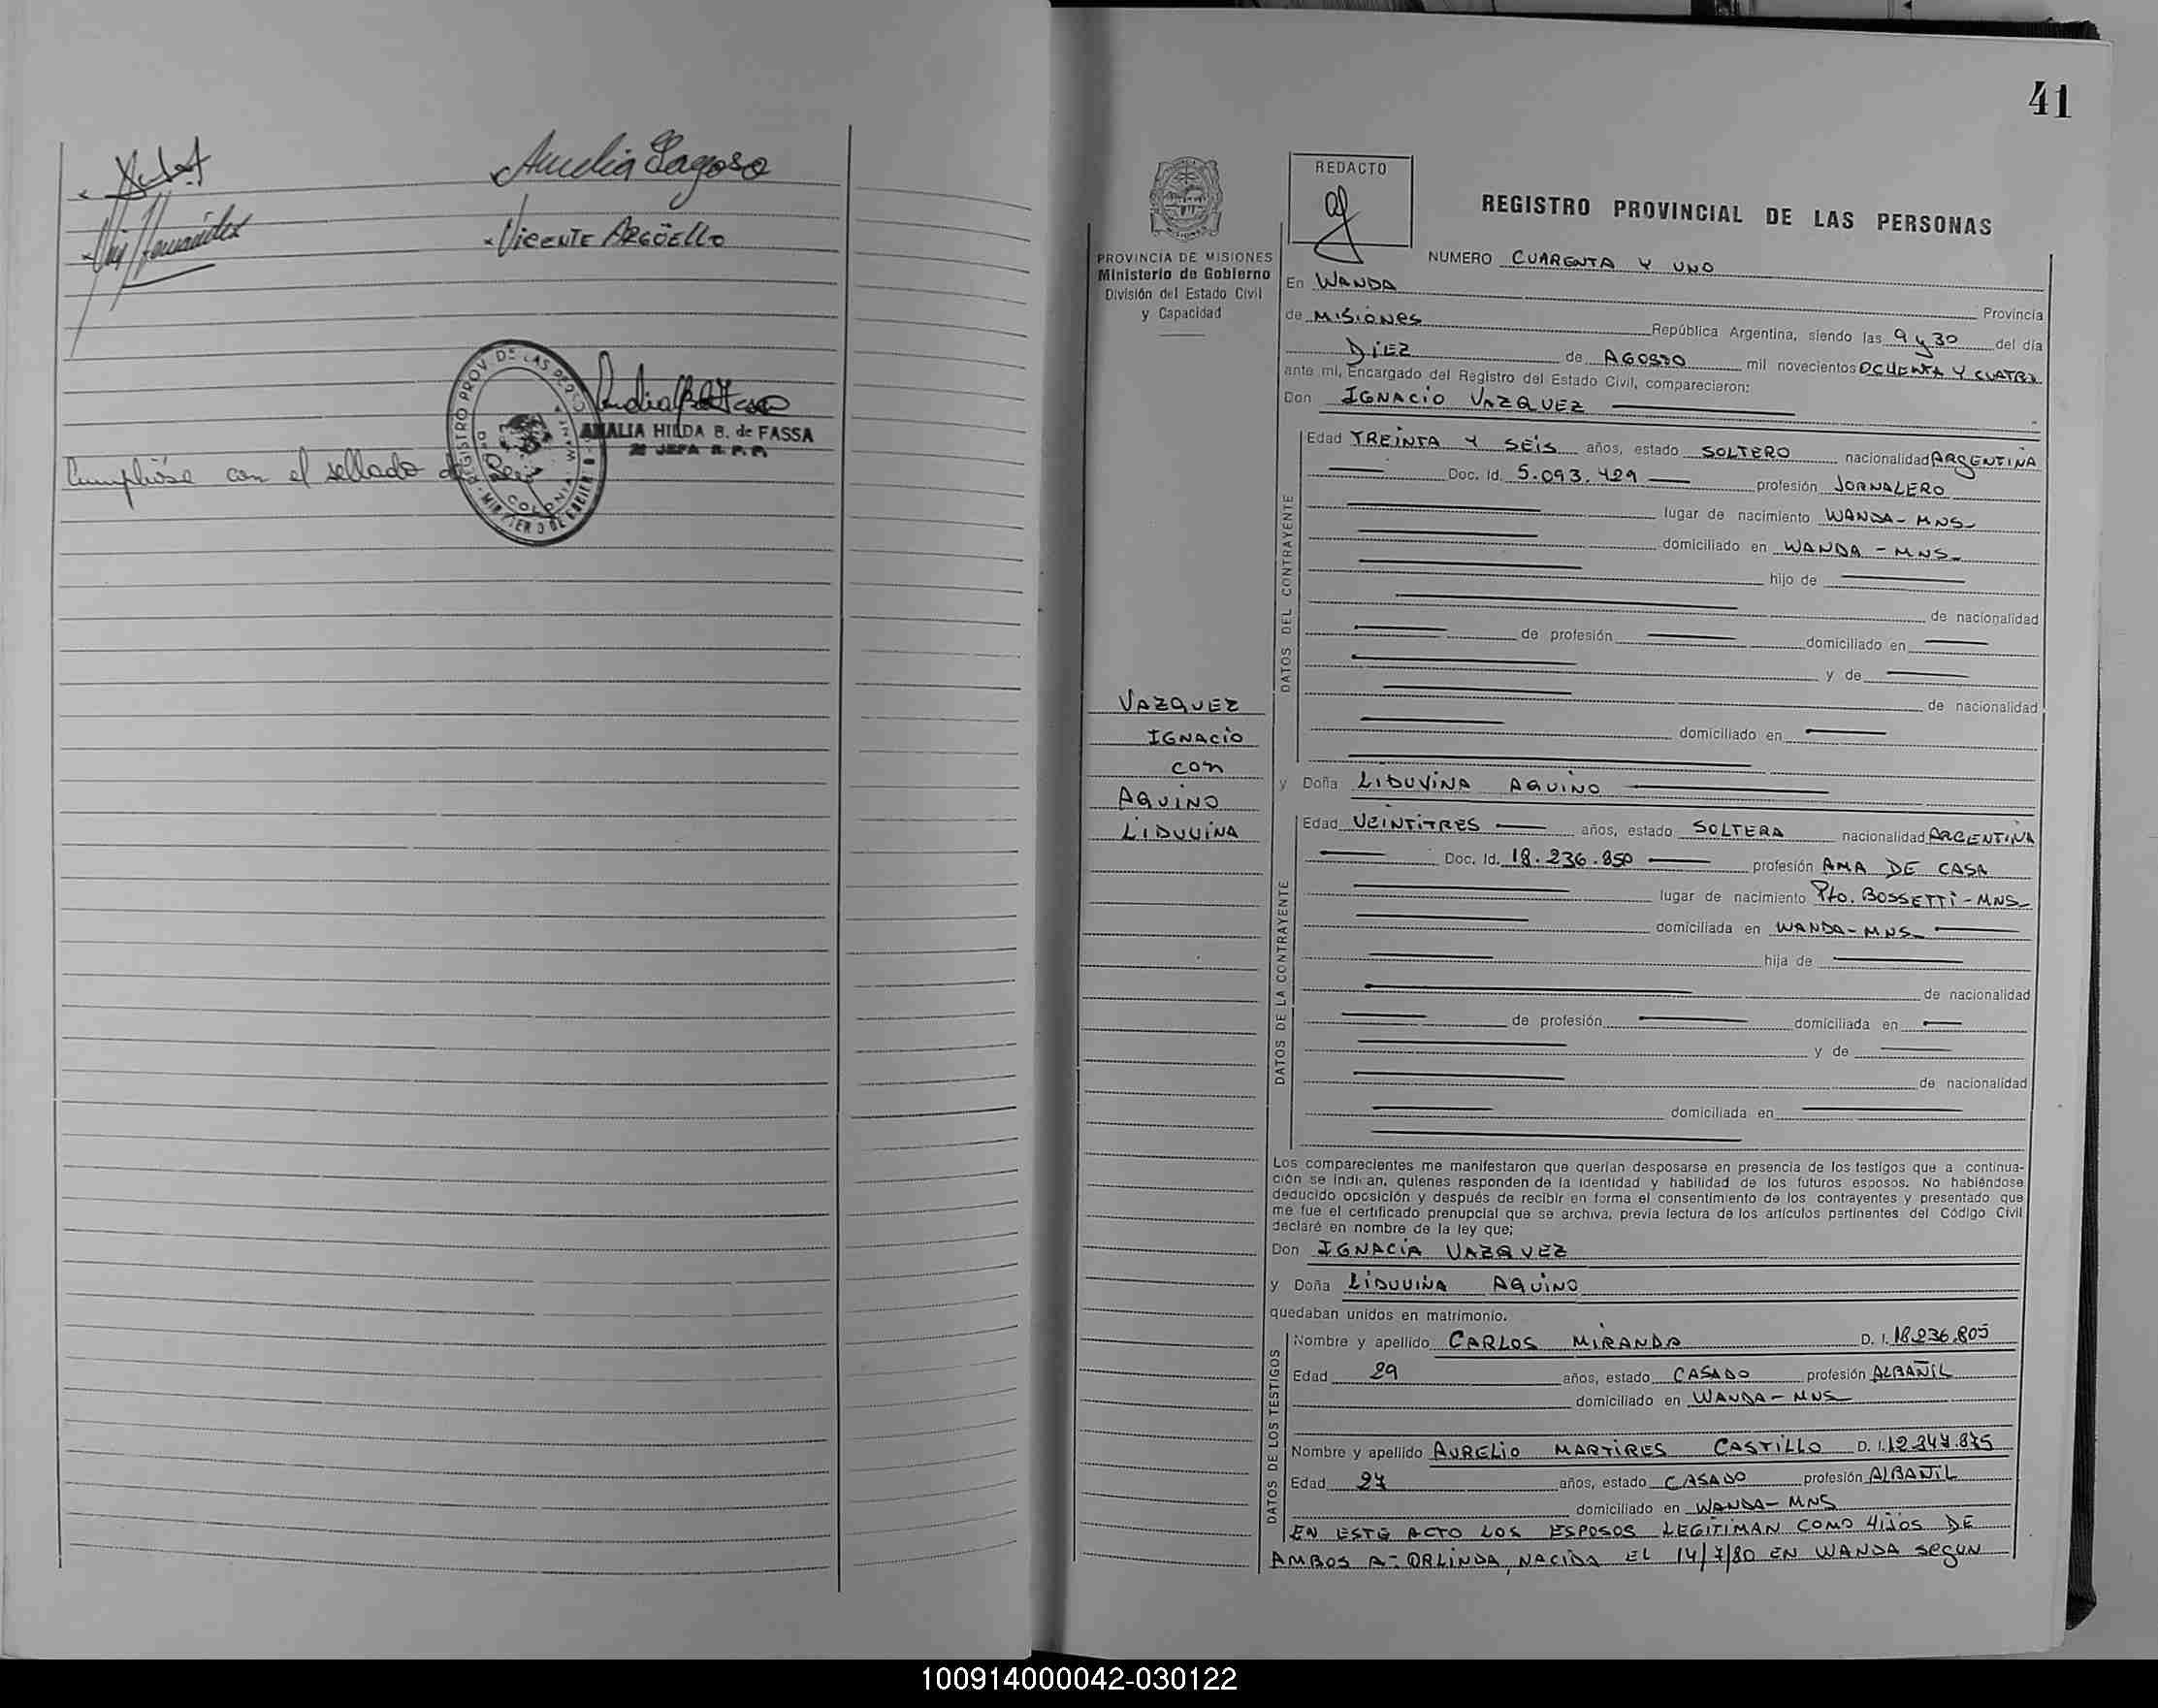 Amelia Lagoso
Luis Hernández
Vicente Argüello
REGISTRO PROV. DE LAS PERS
COLONIA WANDA
AMALIA HILDA B. de FASSA
JEFA R. P. P.
Cumplióse con el sellado de
41
REDACTO
REGISTRO PROVINCIAL DE LAS PERSONAS
PROVINCIA DE MISIONES
Ministerio de Gobierno
División del Estado Civil
y Capacidad
NUMERO CUARENTA Y UNO
En WANDA Provincia
de MISIONES República Argentina, siendo las 9 y 30 del día
DIEZ de AGOSTO mil novecientos OCHENTA Y CUATRO
ante mí, Encargado del Registro del Estado Civil, comparecieron:
Don IGNACIO VAZQUEZ
DATOS DEL CONTRAYENTE
Edad TREINTA Y SEIS años, estado SOLTERO nacionalidad ARGENTINA
Doc. Id. 5.093.429 profesión JORNALERO
lugar de nacimiento WANDA - MNS
domiciliado en WANDA - MNS
hijo de
de nacionalidad
de profesión domiciliado en
y de
de nacionalidad
domiciliado en
VAZQUEZ
IGNACIO
con
AQUINO
LIDUVINA
y Doña LIDUVINA AQUINO
DATOS DE LA CONTRAYENTE
Edad VEINTITRES años, estado SOLTERA nacionalidad ARGENTINA
Doc. Id. 18.236.850 profesión AMA DE CASA
lugar de nacimiento Pto. BOSSETTI - MNS
domiciliada en WANDA - MNS
hija de
de nacionalidad
de profesión domiciliada en
y de
de nacionalidad
domiciliada en
Los comparecientes me manifestaron que querían desposarse en presencia de los testigos que a continua-
ción se indican, quienes responden de la identidad y habilidad de los futuros esposos. No habiéndose
deducido oposición y después de recibir en forma el consentimiento de los contrayentes y presentado que
me fue el certificado prenupcial que se archiva, previa lectura de los artículos pertinentes del Código Civil
declaré en nombre de la ley que;
Don IGNACIA VAZQUEZ
y Doña LIDUVINA AQUINO
quedaban unidos en matrimonio.
DATOS DE LOS TESTIGOS
Nombre y apellido CARLOS MIRANDA D. I. 18.236.805
Edad 29 años, estado CASADO profesión ALBAÑIL
domiciliado en WANDA - MNS
Nombre y apellido AURELIO MARTIRES CASTILLO D. I.
Edad 27 años, estado CASADO profesión ALBAÑIL
domiciliado en WANDA - MNS
EN ESTE ACTO LOS ESPOSOS LEGITIMAN COMO HIJOS DE
AMBOS A:- ORLINDA, NACIDA EL 14/7/80 EN WANDA SEGUN
100914000042-030122